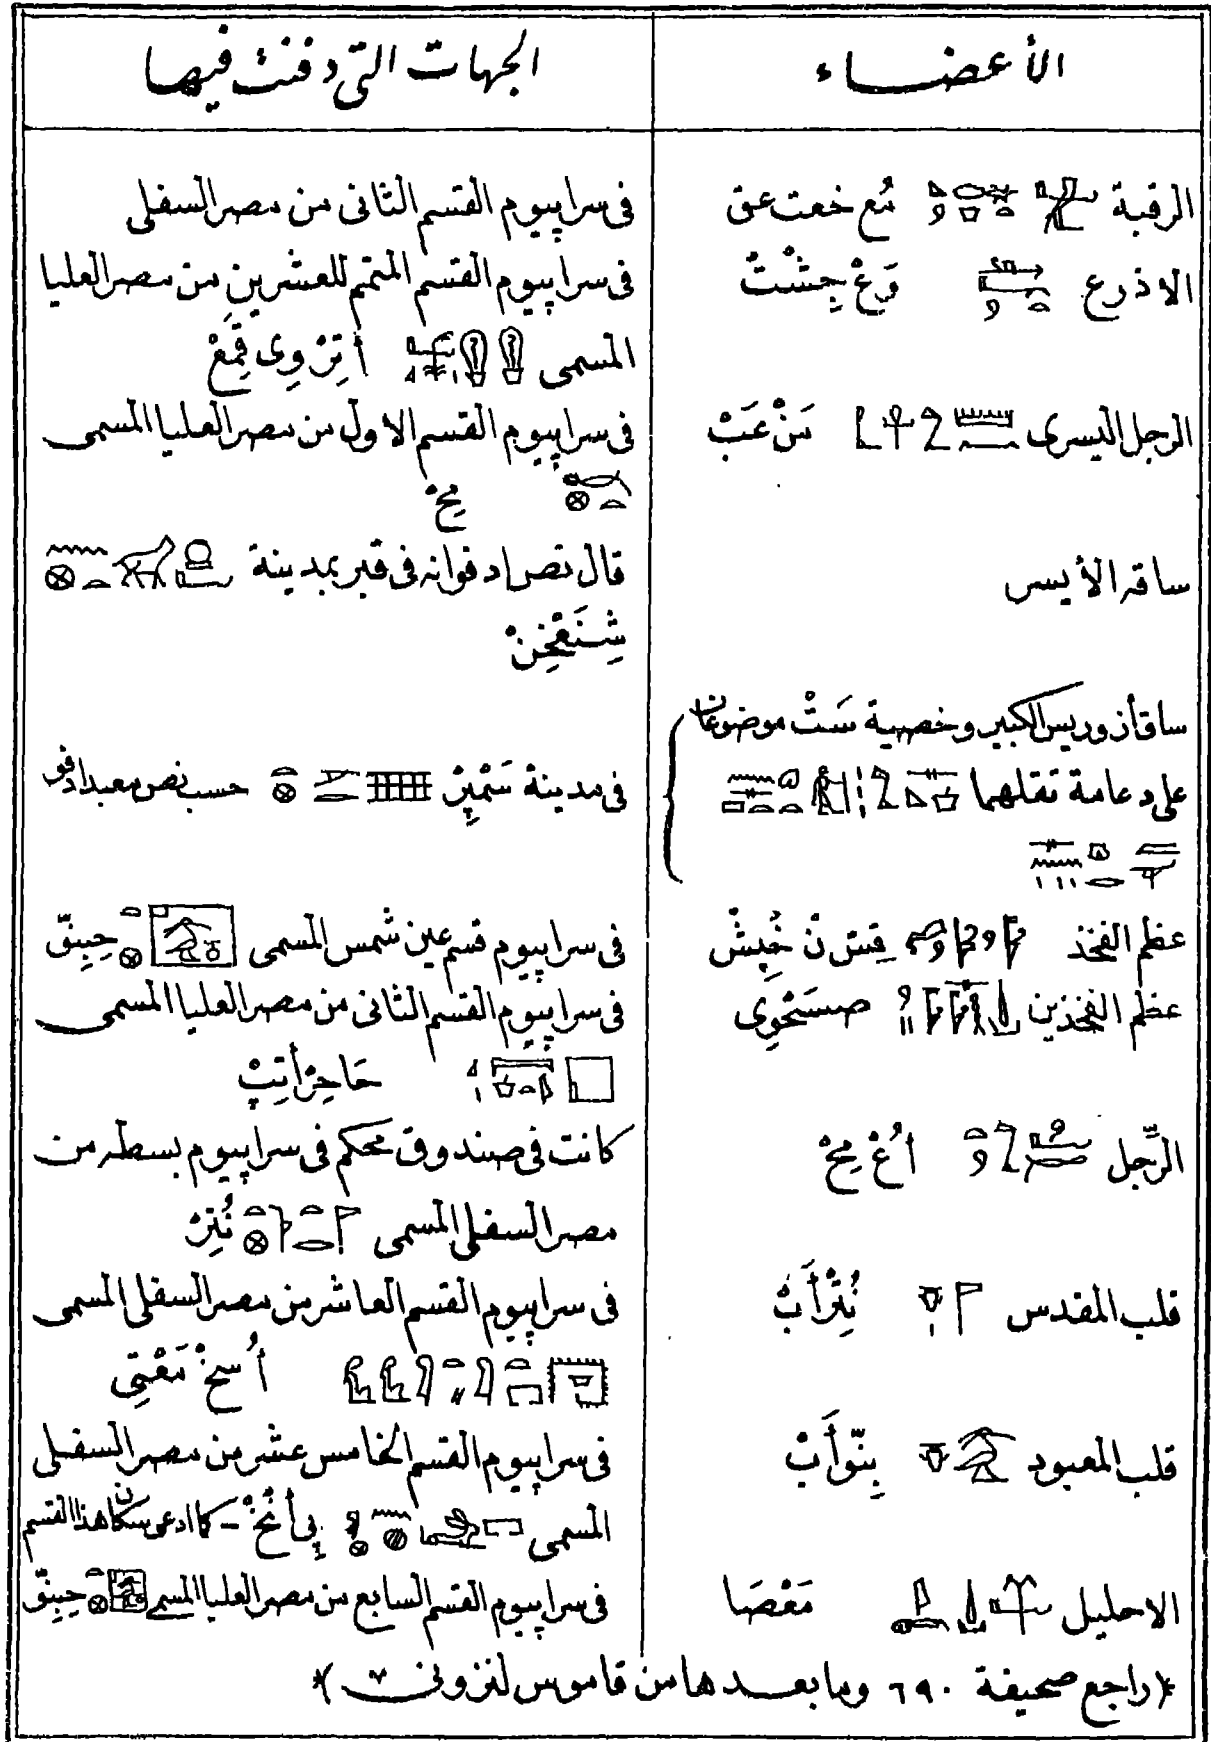 الأعضاء
الجهات التى دفنت فيها
الرقبة مُع خعت عق
فى سرابيوم القسم الثانى من مصر السفلى
الاذرع وَعْ جِشْتْ
فى سرابيوم القسم المتمم للعشرين من مصر العليا
المسمى أتِرْ وِى قِمَعْ
الرجل اليسرى مَنْ عَبْ
فى سرابيوم القسم الاول من مصر العليا المسمى
مِحْ
ساقه الأيسر
قال نص ادفو انه فى قبر بمدينة
شِنَعْخِنْ
ساق أزوريس الكبير وخصية سَتْ موضوعان
على دعامة تقلهما
فى مدينة سَمْپِرْ حسب نص معبد ادفو
عظم الفخذ قِسْ نْ خُپِشْ
فى سرابيوم قسم عين شمس المسمى حِبِنِقّ
عظم الفخذين صسَحْوِى
فى سرابيوم القسم الثانى من مصر العليا المسمى
حَاحِرْ أتِپْ
الرِّجل أُعْ مِحْ
كانت فى صندوق محكم فى سرابيوم بسطه من
مصر السفلى المسمى نُتِرْ
قلب المقدس نُتِرْ أَبْ
فى سرابيوم القسم العاشر من مصر السفلى المسمى
أُسِخْ مَعْتِى
قلب المعبود بِنّو أَبْ
فى سرابيوم القسم الخامس عشر من مصر السفلى
المسمى پِى أُنُخْ - كما ادعى سكان هذا القسم
الاحليل مَعْصَا
فى سرابيوم القسم السابع من مصر العليا المسمى حِبِنِقّ
﴿راجع صحيفة ٦٩٠ وما بعدها من قاموس لنزونى ٧﴾